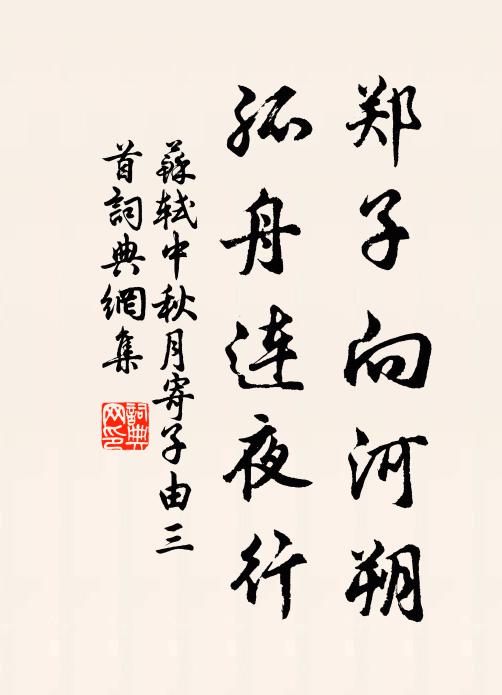 郑子向河朔
孤舟連夜行
蘇軾中秋月寄子由三
首詞典網集
詞典网印